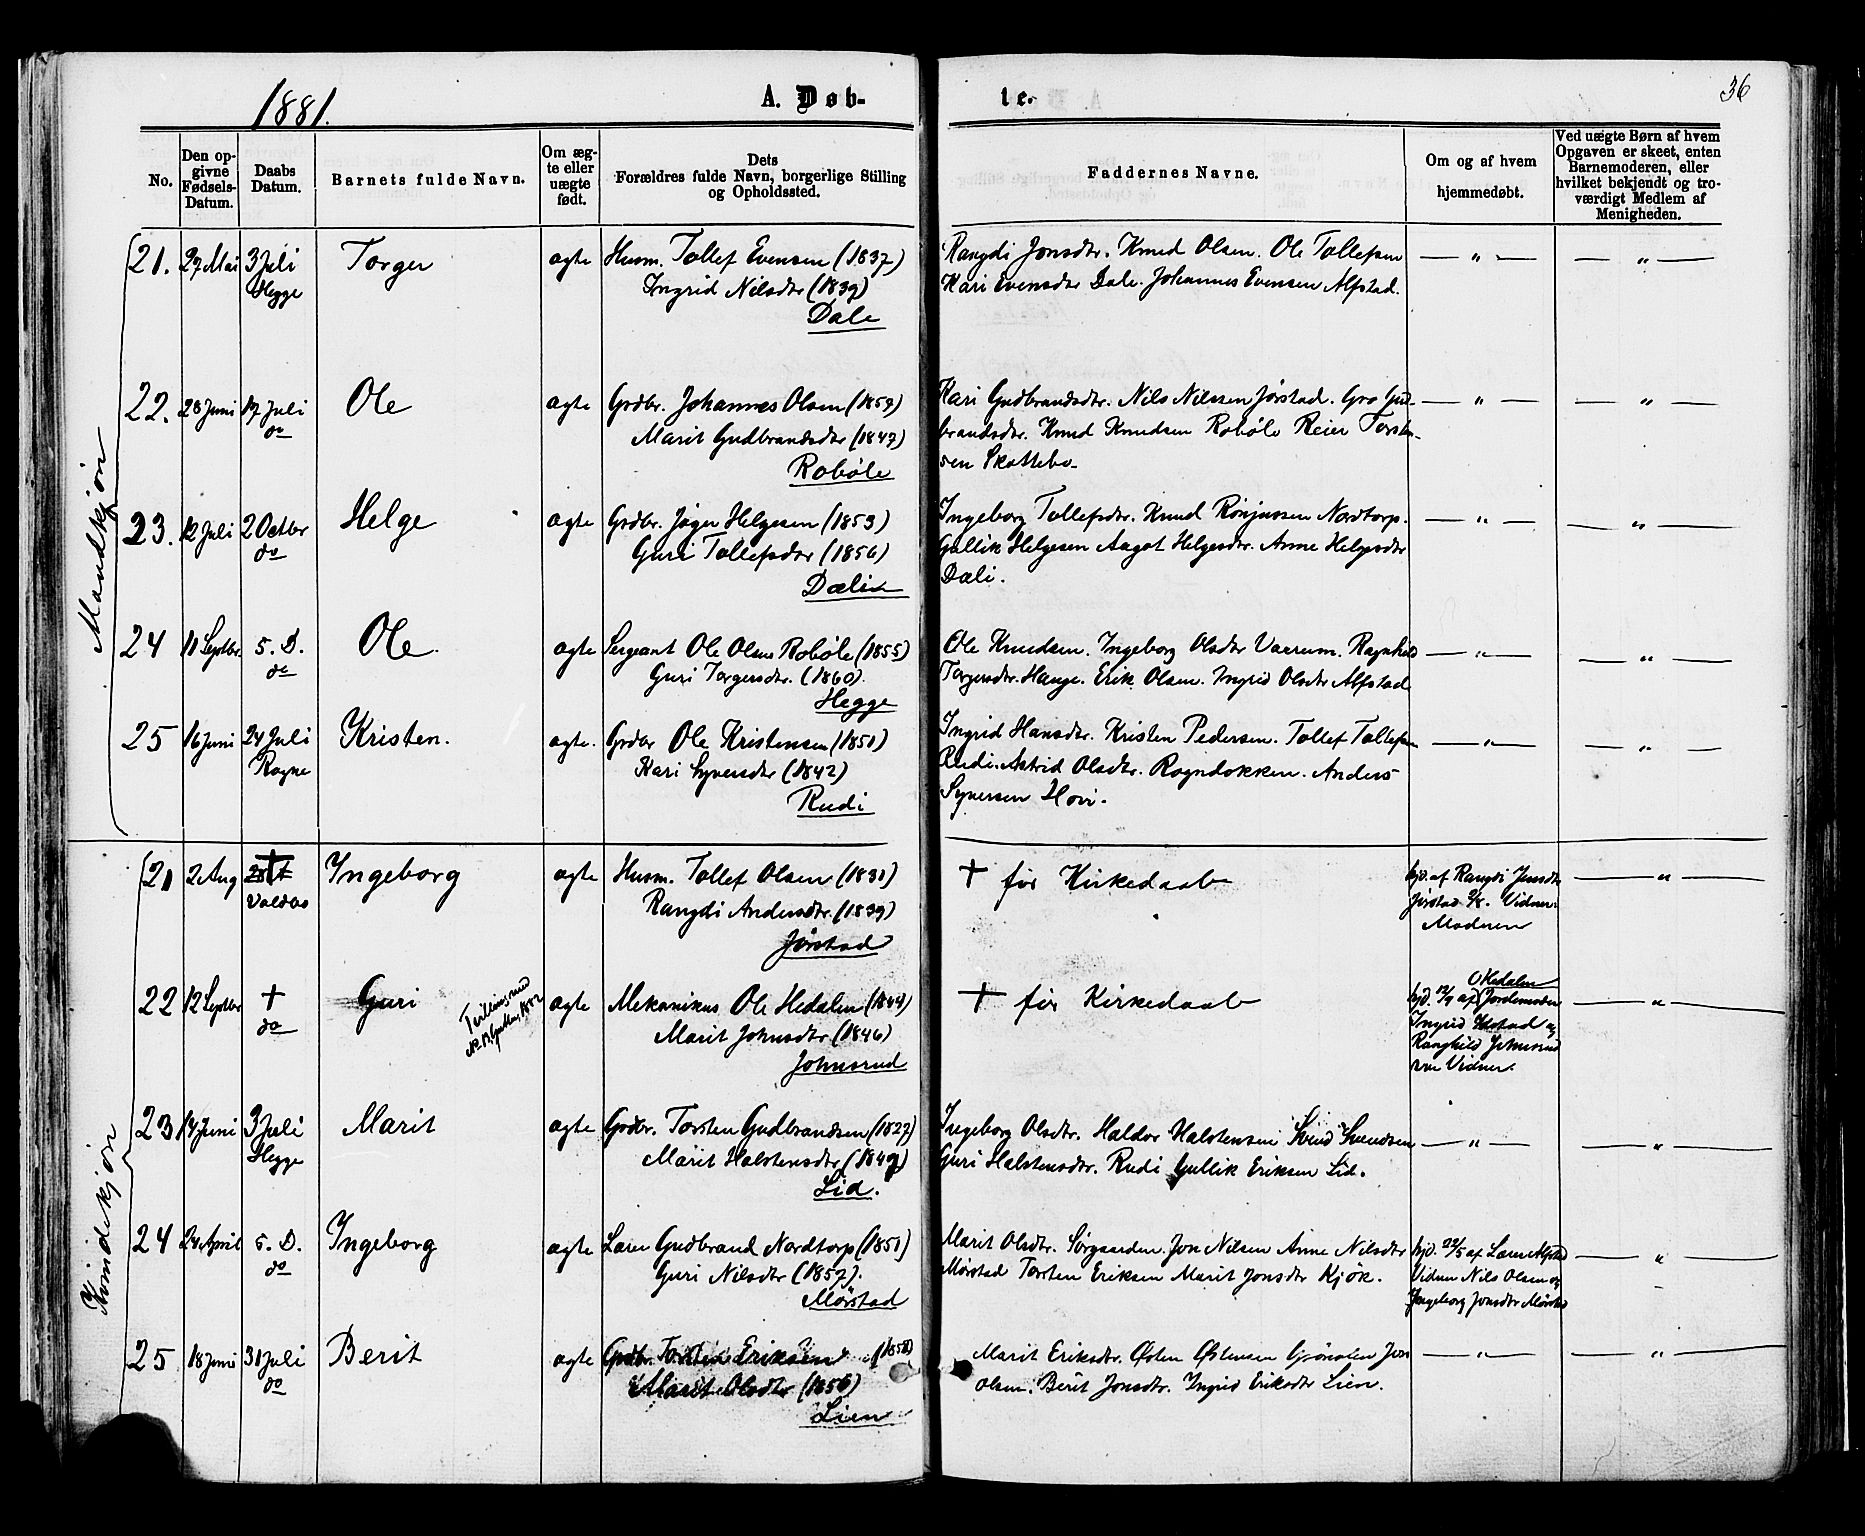 1881.
A. Døb-
te.
36
No.
Den op-
givne
Fødsels-
Datum.
Daabs
Datum.
Barnets fulde Navn.
Om æg-
te eller
uægte
født.
Dets
Forældres fulde Navn, borgerlige Stilling
og Opholdssted.
Faddernes Navne.
Om og af hvem
hjemmedøbt.
Ved uægte Børn af hvem
Opgaven er skeet, enten
Barnemoderen, eller
hvilket bekjendt og tro-
værdigt Medlem af
Menigheden.
Mandkjøn
21. 27 Mai 3 Juli Torger ægte Husm. Tollef Evensen (1837) Rangdi Jonsdtr. Knud Olsen. Ole Tollefsen — " — — " —
Hegge Ingrid Nilsdtr (1839) Kari Evensdtr Dale. Johannes Evensen Alfstad.
Dale
22. 28 Juni 17 Juli Ole ægte Grdbr. Johannes Olsen (1857) Kari Gudbrandsdtr. Nils Nilssen Jørstad. Gro Gud- — " — — " —
do Marit Gudbrandsdtr (1847) brandsdtr. Knud Knudsen Robøle Reier Torste-
Robøle sen Skattebo.
23. 12 Juli 2 Octbr Helge ægte Grdbr. Jøger Helgesen (1853) Ingeborg Tollefsdtr. Knud Nordtorp. — " — — " —
do Guri Tollefsdtr (1856) Gullik Helgesen Aagot Helgesdtr. Anne Helgesdtr
Dæli Dæli.
24 11 Septbr. s. D. Ole. ægte Sergeant Ole Olsen Robøle (1855) Ole Knudsen. Ingeborg Olsdtr Varrum. Ragnhild — " — — " —
do Guri Torgersdtr. (1860). Torgersdtr. Hauge. Erik Olsen. Ingrid Olsdtr Alfstad
Hegge
25 16 Juni 24 Juli Kristen. ægte. Grdbr Ole Kristensen (1851) Ingrid Hansdtr. Kristen Pedersen. Tollef Tollefsen — " — — " —
Rogne Kari Syversdtr (1842) Rudi. Astrid Olsdtr. Rogndokken. Anders
Rudi Syversen Hovi.
Kvindekjøn
21 2 Aug † Ingeborg ægte Husm. Tollef Olsen (1831) † før Kirkedaab hjd. af Rangdi Jensdtr — " —
Voldbo Rangdi Andersdtr. (1839) Jørstad 2/8. Vidner:
Jørstad Moderen
22 12 Septbr † Guri Tvilling med ægte Mekanikus Ole Hedalen (1844) † før Kirkedaab O Hedalen — " —
do Marit Johnsdtr (1846) hjd. 12/9 af Jordemoder
Johnsrud Ingrid og
Ranghild Johnsrud
var Vidner.
23 14 Juni 3 Juli Marit ægte Grdbr. Torsten Gudbrandsen (1827) Ingeborg Olsdtr. Haldor Halstensen Svend Svendsen — " — — " —
Hegge Marit Halstensdtr (1849) Guri Halstensdtr. Rudi Gullik Eriksen Lid.
Lid.
24 24 April s. D. Ingeborg ægte Lærer Gudbrand Nordtorp (1851) Marit Olsdtr. Sørgaarden. Jon Nilsen Anne Nilsdtr hjd. 22/5 af Lærer Alfstad — " —
do Guri Nilsdtr (1857). Mørstad Torsten Eriksen Marit Jonsdtr Kjøk. Vidner Nils Olsen og
Mørstad Ingeborg Jonsdtr Mørstad
25 18 Juni 31 Juli Berit ægte Grdbr. Torsten Eriksen (1858) Marit Eriksdtr. Østen Østensen Grønolen Jon — " — — " —
do Marit Olsdtr (1856) Olsen. Berit Jonsdtr. Ingrid Eriksdtr Lien.
Lien